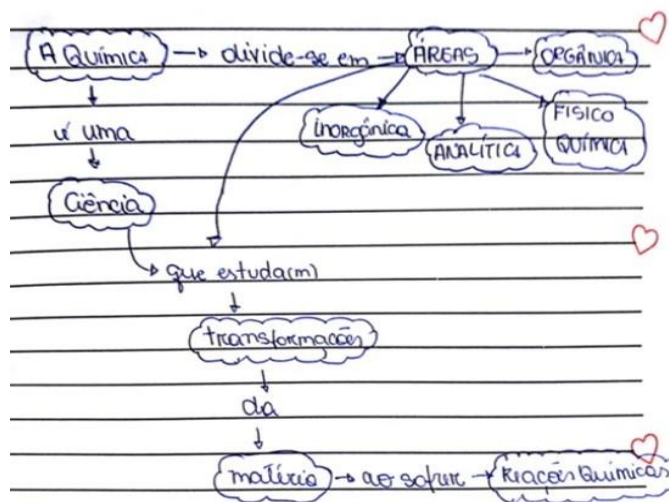 A Química → divide-se em → ÁREAS → ORGÂNICA
inorgânica
ANALÍTICA
FISICO
QUÍMICA
é uma
Ciência
que estuda(m)
transformações
da
matéria → ao sofrer → Reações Químicas